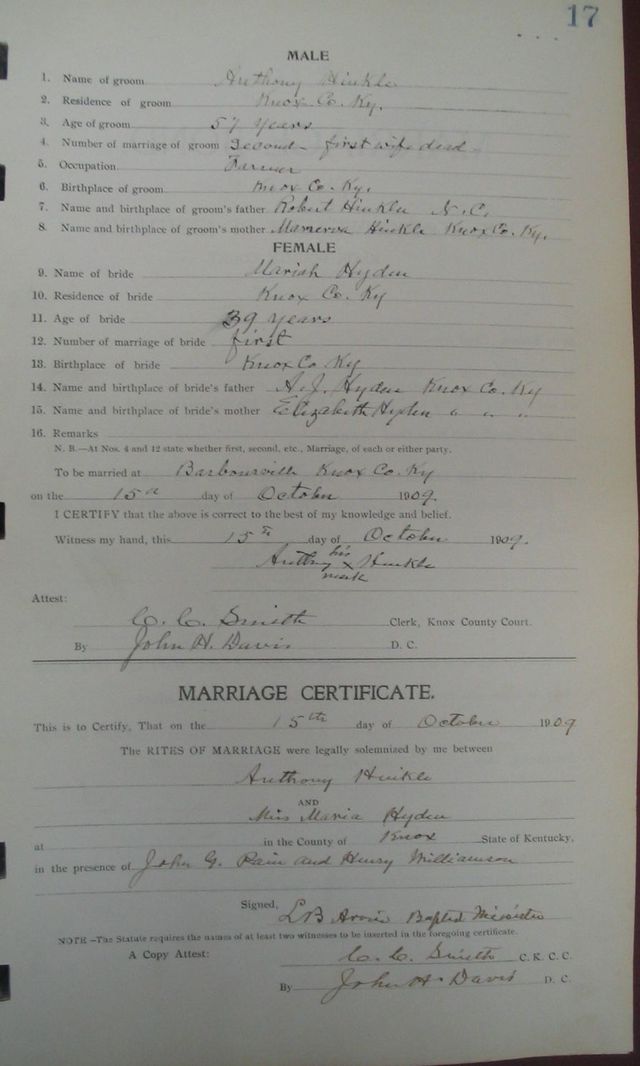 17
MALE
1. Name of groom Anthony Hinkle
2. Residence of groom Knox Co. Ky.
3. Age of groom 57 years
4. Number of marriage of groom Second - first wife dead -
5. Occupation Farmer
6. Birthplace of groom Knox Co. Ky.
7. Name and birthplace of groom's father Robert Hinkle N.C.
8. Name and birthplace of groom's mother Hinkle Knox Co. Ky.
FEMALE
9. Name of bride Mariah Hyden
10. Residence of bride Knox Co. Ky
11. Age of bride 39 years
12. Number of marriage of bride first
13. Birthplace of bride Knox Co Ky
14. Name and birthplace of bride's father A. J. Hyden Knox Co. Ky
15. Name and birthplace of bride's mother Elizabeth Hyden " " "
16. Remarks
N. B.—At Nos. 4 and 12 state whether first, second, etc., Marriage, of each or either party.
To be married at Barbourville Knox Co. Ky
on the 15th day of October 1909.
I CERTIFY that the above is correct to the best of my knowledge and belief.
Witness my hand, this 15th day of October 1909.
his
Anthony x Hinkle
mark
Attest:
C. C. Smith Clerk, Knox County Court.
By John H. Davis D. C.
MARRIAGE CERTIFICATE.
This is to Certify, That on the 15th day of October 1909
The RITES OF MARRIAGE were legally solemnized by me between
Anthony Hinkle
AND
Miss Maria Hyden
at in the County of Knox State of Kentucky,
in the presence of John G. Pain and Henry Williamson
Signed, L B Baptist Minister
NOTE—The Statute requires the names of at least two witnesses to be inserted in the foregoing certificate.
A Copy Attest: C. C. Smith C. K. C. C.
By John H. Davis D. C.